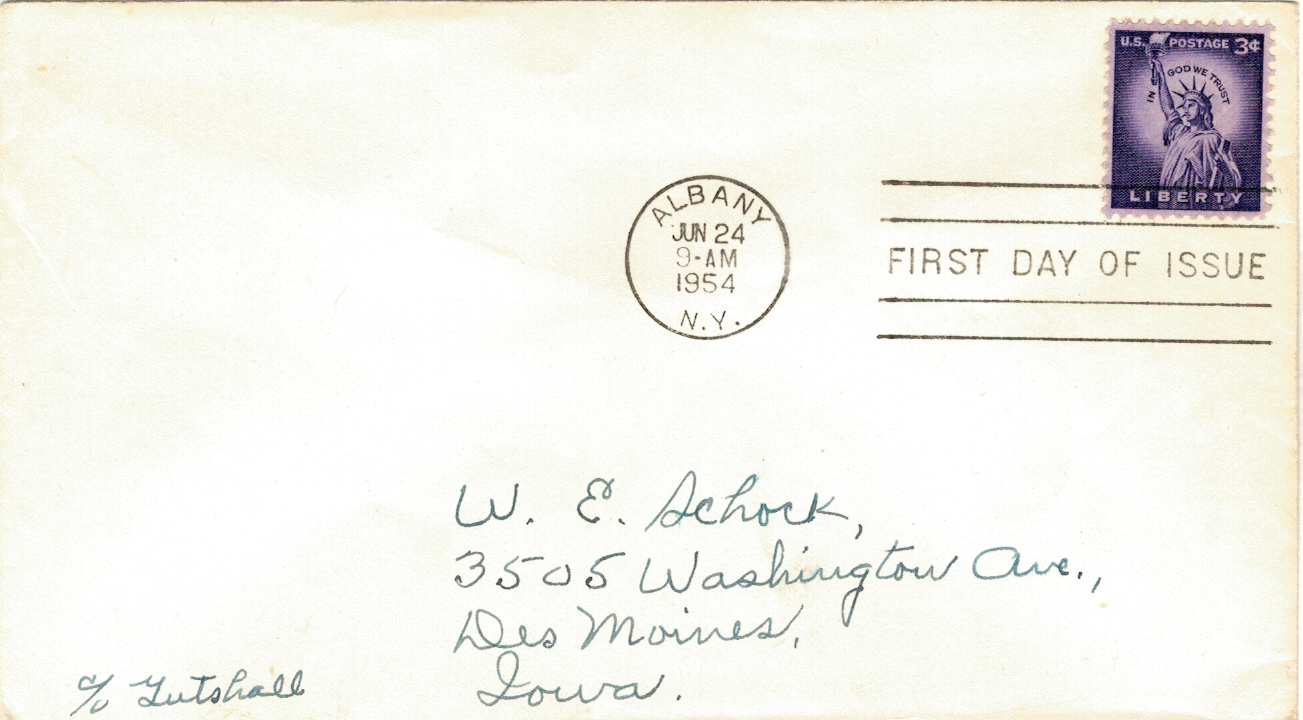 U.S. POSTAGE 3¢
IN GOD WE TRUST
LIBERTY
ALBANY
JUN 24
9-AM
1954
N.Y.
FIRST DAY OF ISSUE
W. E. Schock,
3505 Washington Ave.,
Des Moines,
Iowa.
c/o Gutshall